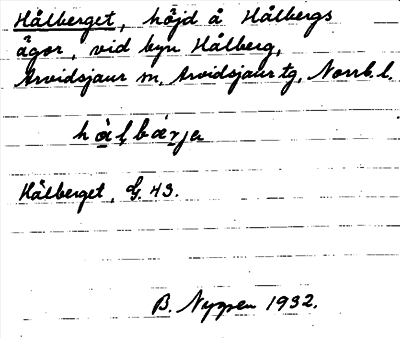 Hålberget, höjd å Hålbergs
ägor, vid byn Hålberg,
Arvidsjaur sn, Arvidsjaur tg, Norrb. l.
Hålberget, G. 43.
B. Nygren 1932.